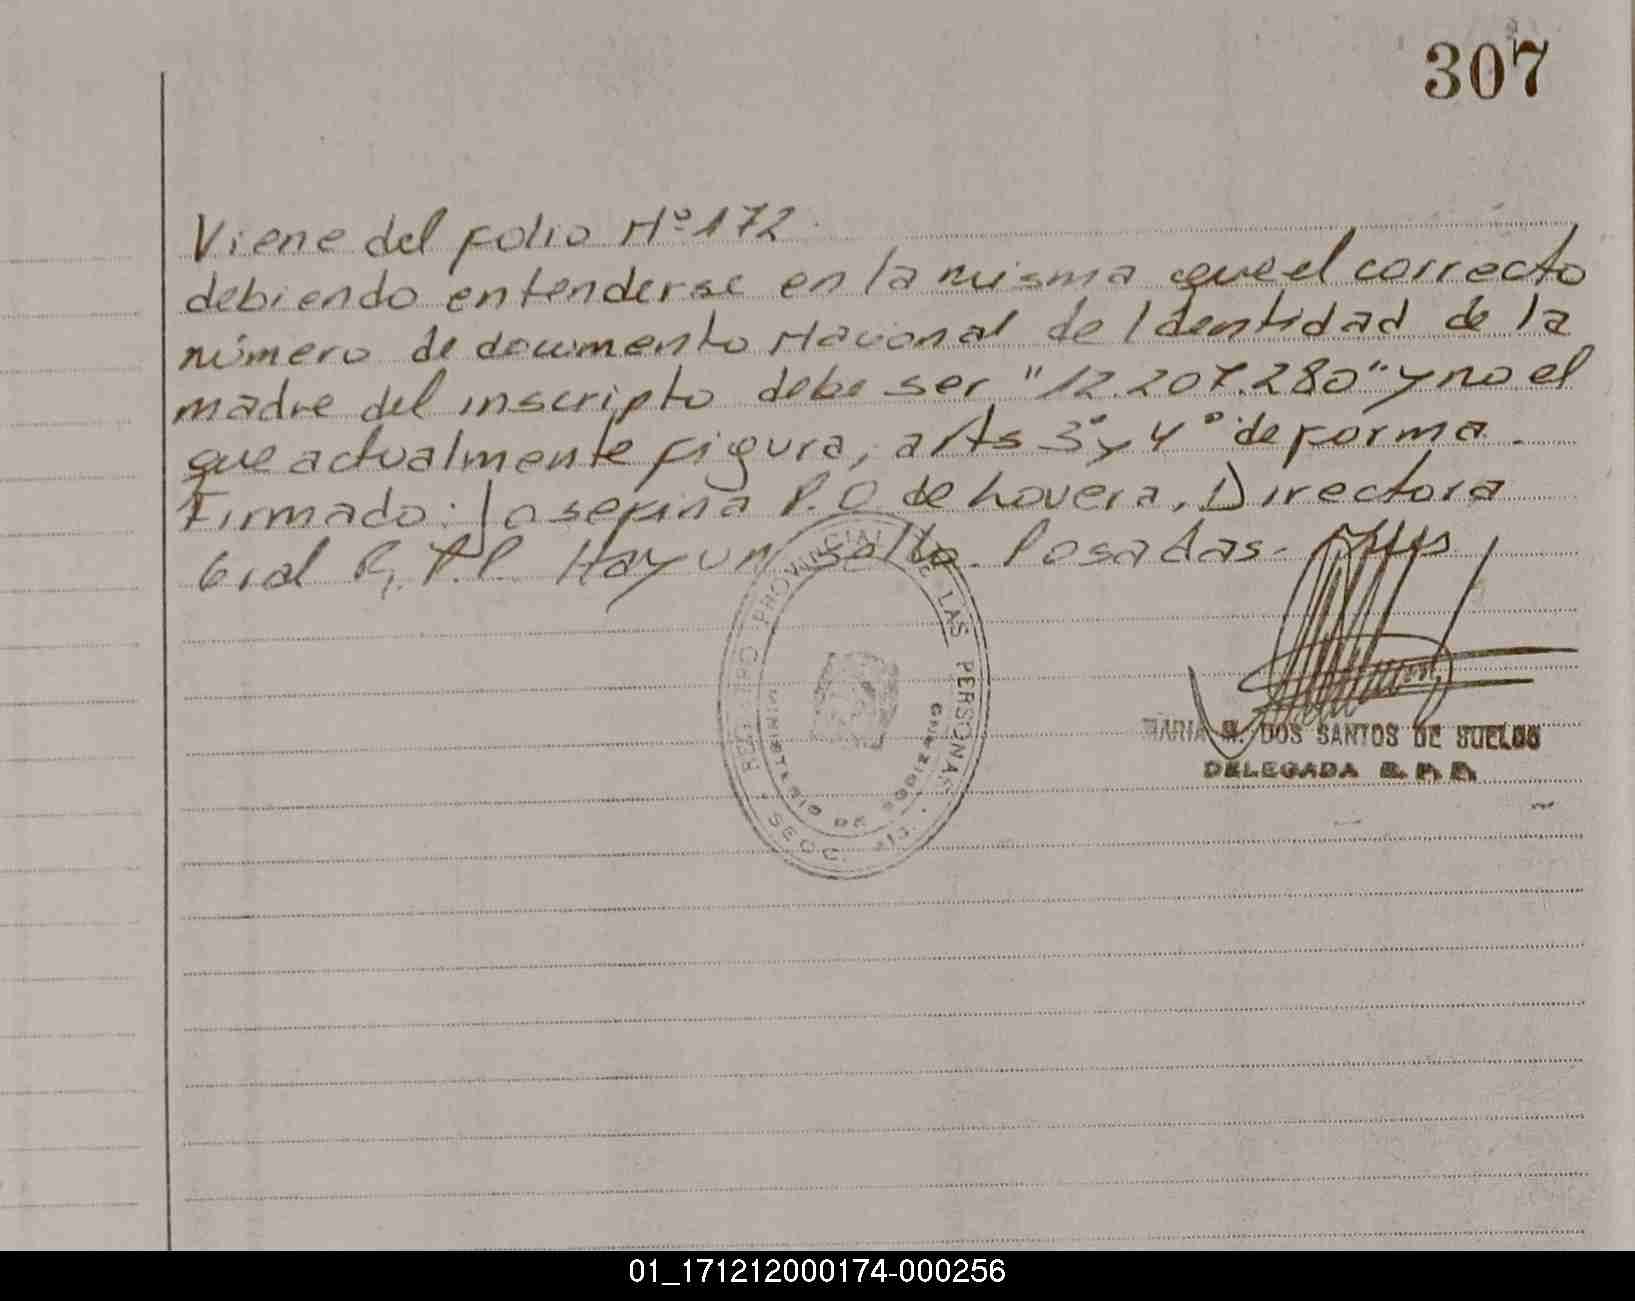 307
Viene del folio Nº 172.
debiendo entenderse en la misma que el correcto
número de documento Nacional de Identidad de la
madre del inscripto debe ser "12.207.280" y no el
que actualmente figura, arts 3º y 4º de forma.
Firmado: Josefina P. O. de Lovera, Directora
Gral R. P. P. Hay un sello. Posadas-
REGISTRO PROVINCIAL DE LAS PERSONAS
MINISTERIO DE GOBIERNO
SECC.
MARIA M. DOS SANTOS DE SUELDO
DELEGADA R. P. P.
01_171212000174-000256